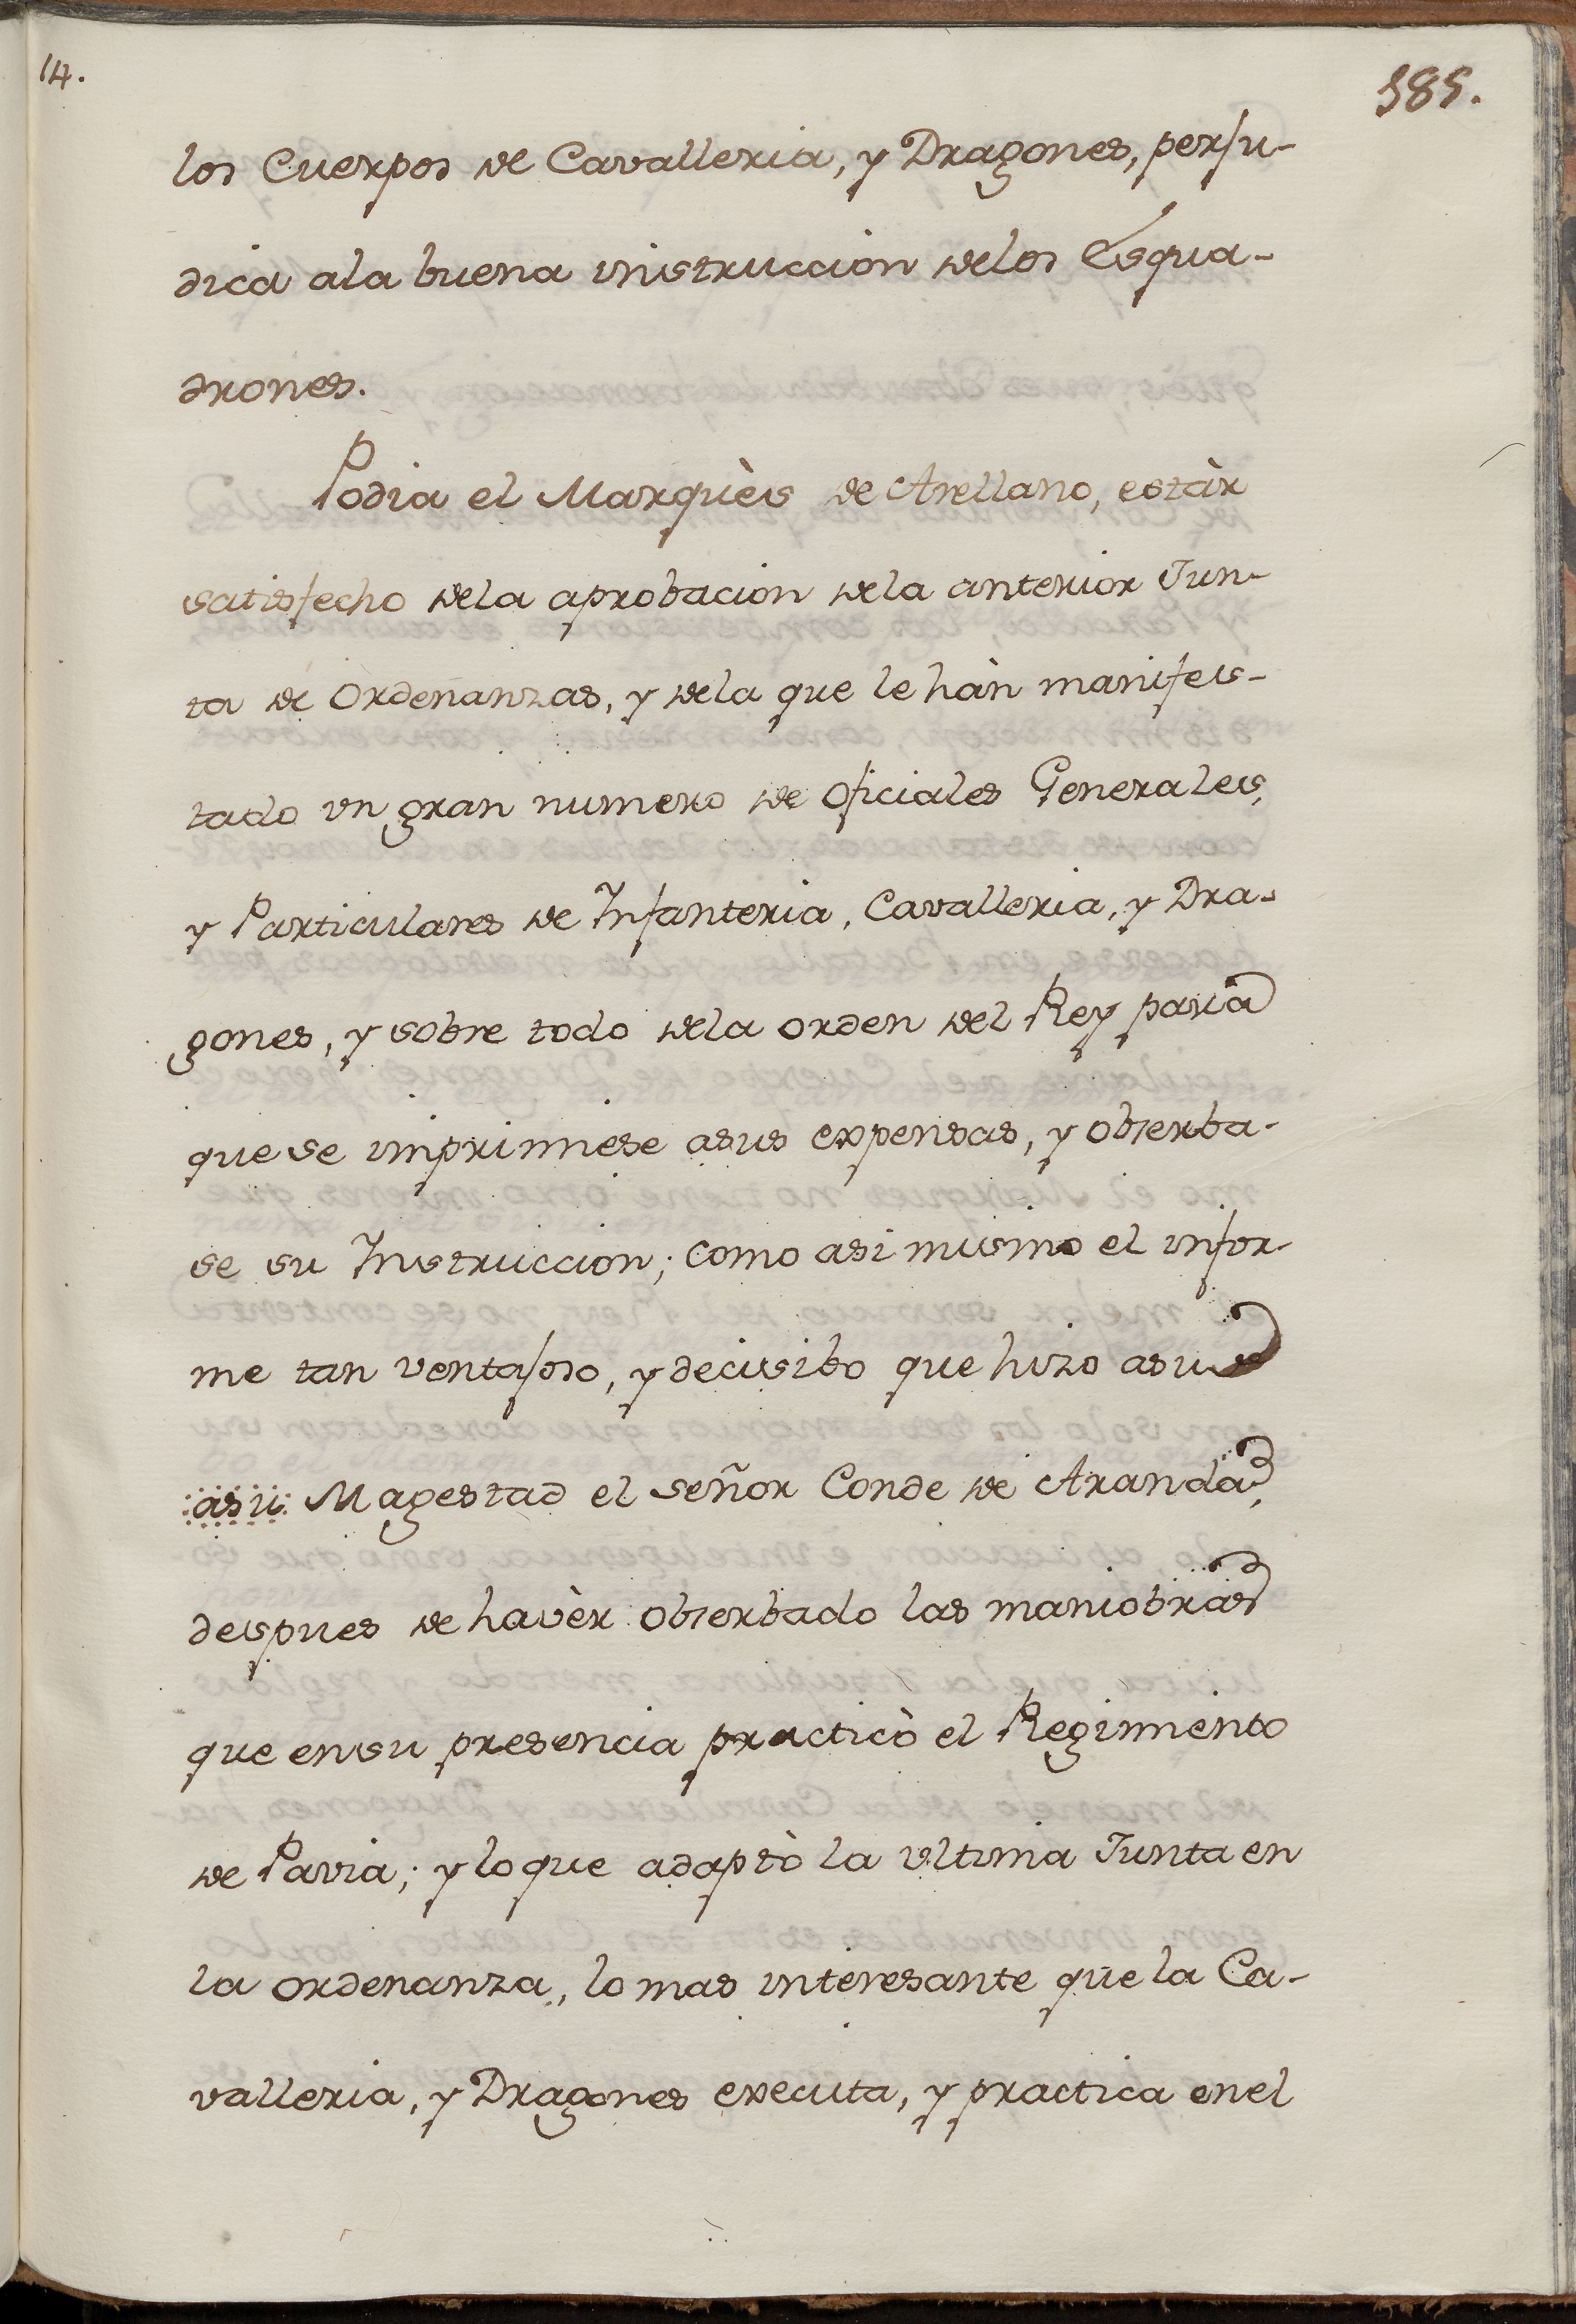 14.
385.
los Cuerpos de Cavalleria, y Dragones, perju-
dica ala buena instruccion delos Esqua-
drones.
Podia el Marquès de Arellano, estàr
satisfecho dela aprobacion dela anterior Jun-
ta de Ordenanzas, y dela que le hàn manifes-
tado vn gran numero de Oficiales Generales,
y Particulares de Infanteria, Cavalleria, y Dra-
gones, y sobre todo dela orden del Rey para
que se imprimiese asus expensas, y obserba-
se su Instruccion; como asi mismo el infor-
me tan ventajoso, y decisibo que hizo asu
asu Magestad el señor Conde de Aranda,
despues de havèr obserbado las maniobras
que ensu presencia practicò el Regimiento
de Pavia; y lo que adaptò la vltima Junta en
la ordenanza, lo mas interesante que la Ca-
valleria, y Dragones executa, y practica enel